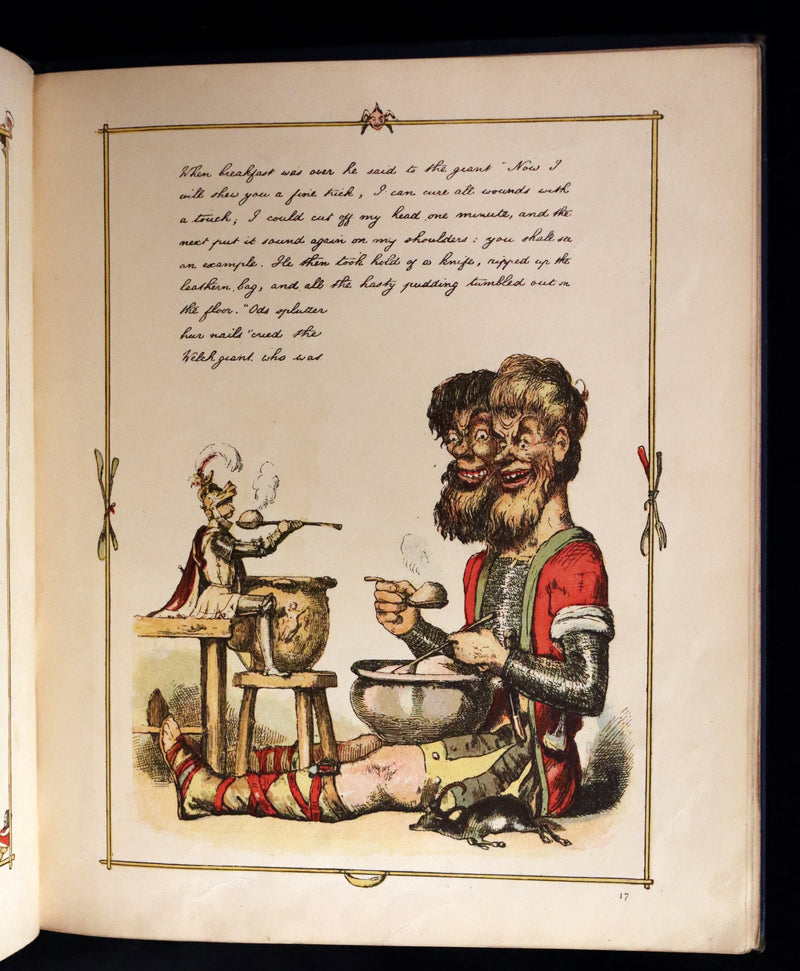 When breakfast was over he said to the giant "Now I
will shew you a fine trick, I can cure all wounds with
a touch; I could cut off my head one minute, and the
next put it sound again on my shoulders: you shall see
an example. He then took hold of a knife, ripped up the
leathern bag, and all the hasty pudding tumbled out on
the floor. "Ods splutter
hur nails" cried the
Welch giant. who was
17